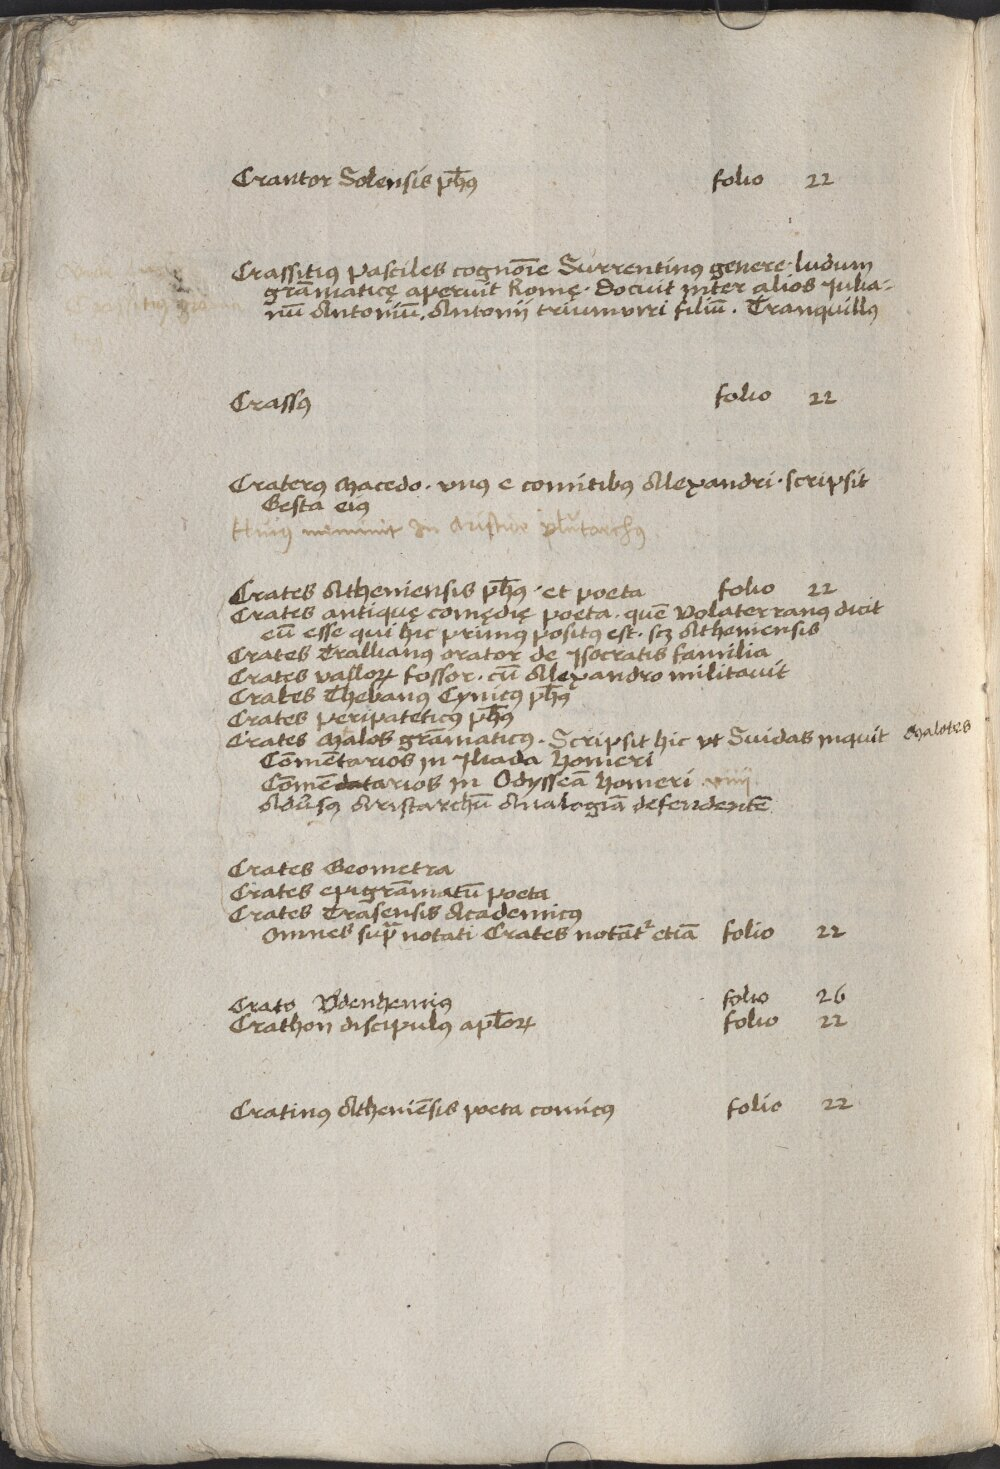 Crantor Solensis ph̄us folio 22
Crassitius Pasciles cognōīe Surrentinus genere. ludum
grāmaticę aperuit Romę. Docuit inter alios Julia-
nū Antoniū. Antonij triumviri filiū. Tranquillus
Crassus folio 22
Craterus Macedo. vnus e comitibus Alexandri. scripsit
Gesta eius
Huius meminit in Plutarchus
Crates Atheniensis ph̄us. et poeta folio 22
Crates antiquę comędię poeta. quē Volaterranus dicit
eū esse qui hic primus positus est. scz Atheniensis
Crates Trallianus orator de Isocratis familia
Crates vallorꝝ fossor. cū Alexandro militauit
Crates Thebanus Cynicus ph̄us
Crates peripateticus ph̄us
Crates Malos grāmaticus. Scripsit hic vt Suidas inquit Malotes
Cōmētarios in Iliada Homeri
Cōmēdatarios in Odysseā Homeri viiij
Adūsus Aristarchū Analogiā defendentē
Crates Geometra
Crates epigrāmatū poeta
Crates Trasensis Academicus
omnes supͣ notati Crates notātᷣ etiā folio 22
Crato Vdenhemius folio 26
Crathon discipulus apl̄orꝝ folio 22
Cratinus Atheniēsis poeta comicus folio 22